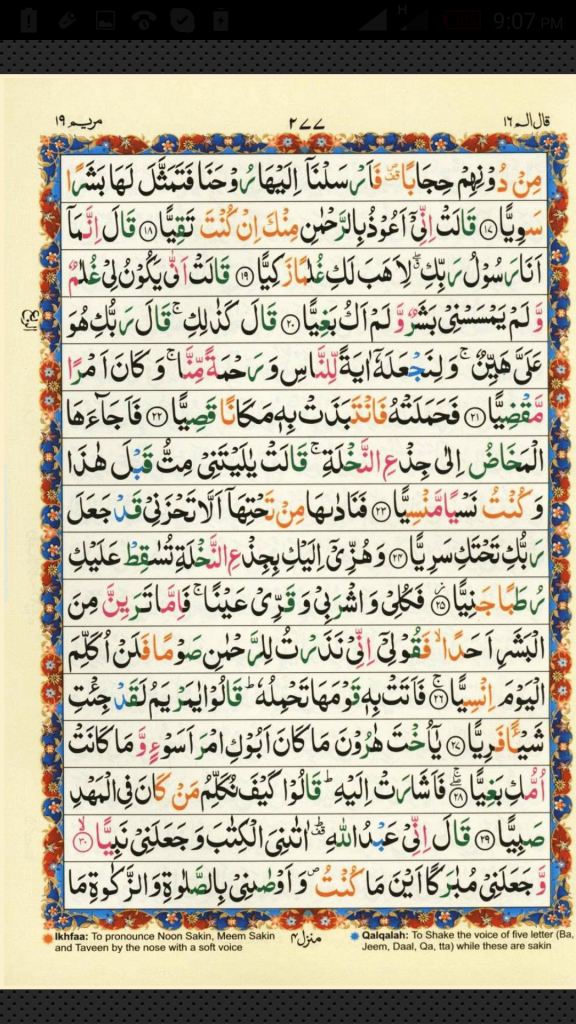 9:07 PM
H
مريم ١٩
٢٧٧
قال الم ١٦
مِنْ دُوْنِهِمْ حِجَابًا ۪ۗ فَاَرْسَلْنَاۤ اِلَيْهَا رُوْحَنَا فَتَمَثَّلَ لَهَا بَشَرًا
سَوِيًّا ﴿۱۷﴾ قَالَتْ اِنِّيْۤ اَعُوْذُ بِالرَّحْمٰنِ مِنْكَ اِنْ كُنْتَ تَقِيًّا ﴿۱۸﴾ قَالَ اِنَّمَاۤ
اَنَا رَسُوْلُ رَبِّكِ ۖۗ لِاَهَبَ لَكِ غُلٰمًا زَكِيًّا ﴿۱۹﴾ قَالَتْ اَنّٰى يَكُوْنُ لِيْ غُلٰمٌ
وَّلَمْ يَمْسَسْنِيْ بَشَرٌ وَّلَمْ اَكُ بَغِيًّا ﴿۲۰﴾ قَالَ كَذٰلِكِ ۚ قَالَ رَبُّكِ هُوَ
عَلَيَّ هَيِّنٌ ۚ وَلِنَجْعَلَهٗۤ اٰيَةً لِّلنَّاسِ وَرَحْمَةً مِّنَّا ۚ وَكَانَ اَمْرًا
مَّقْضِيًّا ﴿۲۱﴾ فَحَمَلَتْهُ فَانْتَبَذَتْ بِهٖ مَكَانًا قَصِيًّا ﴿۲۲﴾ فَاَجَآءَهَا
الْمَخَاضُ اِلٰى جِذْعِ النَّخْلَةِ ۚ قَالَتْ يٰلَيْتَنِيْ مِتُّ قَبْلَ هٰذَا
وَكُنْتُ نَسْيًا مَّنْسِيًّا ﴿۲۳﴾ فَنَادٰىهَا مِنْ تَحْتِهَاۤ اَلَّا تَحْزَنِيْ قَدْ جَعَلَ
رَبُّكِ تَحْتَكِ سَرِيًّا ﴿۲۴﴾ وَهُزِّيْۤ اِلَيْكِ بِجِذْعِ النَّخْلَةِ تُسٰقِطْ عَلَيْكِ
رُطَبًا جَنِيًّا ﴿۲۵﴾ فَكُلِيْ وَاشْرَبِيْ وَقَرِّيْ عَيْنًا ۚ فَاِمَّا تَرَيِنَّ مِنَ
الْبَشَرِ اَحَدًا ۙ فَقُوْلِيْۤ اِنِّيْ نَذَرْتُ لِلرَّحْمٰنِ صَوْمًا فَلَنْ اُكَلِّمَ
الْيَوْمَ اِنْسِيًّا ﴿۲۶﴾ۚ فَاَتَتْ بِهٖ قَوْمَهَا تَحْمِلُهٗ ؕ قَالُوْا يٰمَرْيَمُ لَقَدْ جِئْتِ
شَيْـًٔا فَرِيًّا ﴿۲۷﴾ يٰۤاُخْتَ هٰرُوْنَ مَا كَانَ اَبُوْكِ امْرَاَ سَوْءٍ وَّمَا كَانَتْ
اُمُّكِ بَغِيًّا ﴿۲۸﴾ۖۚ فَاَشَارَتْ اِلَيْهِ ؕ قَالُوْا كَيْفَ نُكَلِّمُ مَنْ كَانَ فِي الْمَهْدِ
صَبِيًّا ﴿۲۹﴾ قَالَ اِنِّيْ عَبْدُ اللّٰهِ ۪ؕ اٰتٰىنِيَ الْكِتٰبَ وَجَعَلَنِيْ نَبِيًّا ﴿۳۰﴾ۙ
وَّجَعَلَنِيْ مُبٰرَكًا اَيْنَ مَا كُنْتُ ۪ وَاَوْصٰنِيْ بِالصَّلٰوةِ وَالزَّكٰوةِ مَا
Ikhfaa: To pronounce Noon Sakin, Meem Sakin and Taveen by the nose with a soft voice
منزل ٤
Qalqalah: To Shake the voice of five letter (Ba, Jeem, Daal, Qa, tta) while these are sakin